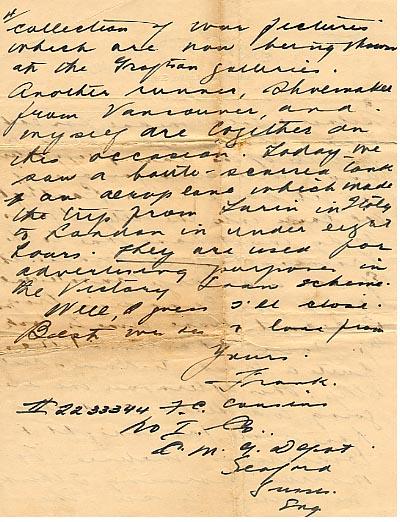 collection of war pictures
which are now being shown
at the Grafton Galleries.
Another runner, Shoemaker
from Vancouver, and
myself are together on
this occasion. Today we
saw a battle-scarred tank
& an aeroplane which made
the trip from Turin in Italy
to London in under eight
hours. They are used for
advertising purposes in
the Victory Loan scheme.
Well, I guess I'll close.
Best wishes & love from
Yours.
Frank.
2233344 F.C. Cousins
No I
C. M. G. Depot.
Seaford
Sussex
Eng